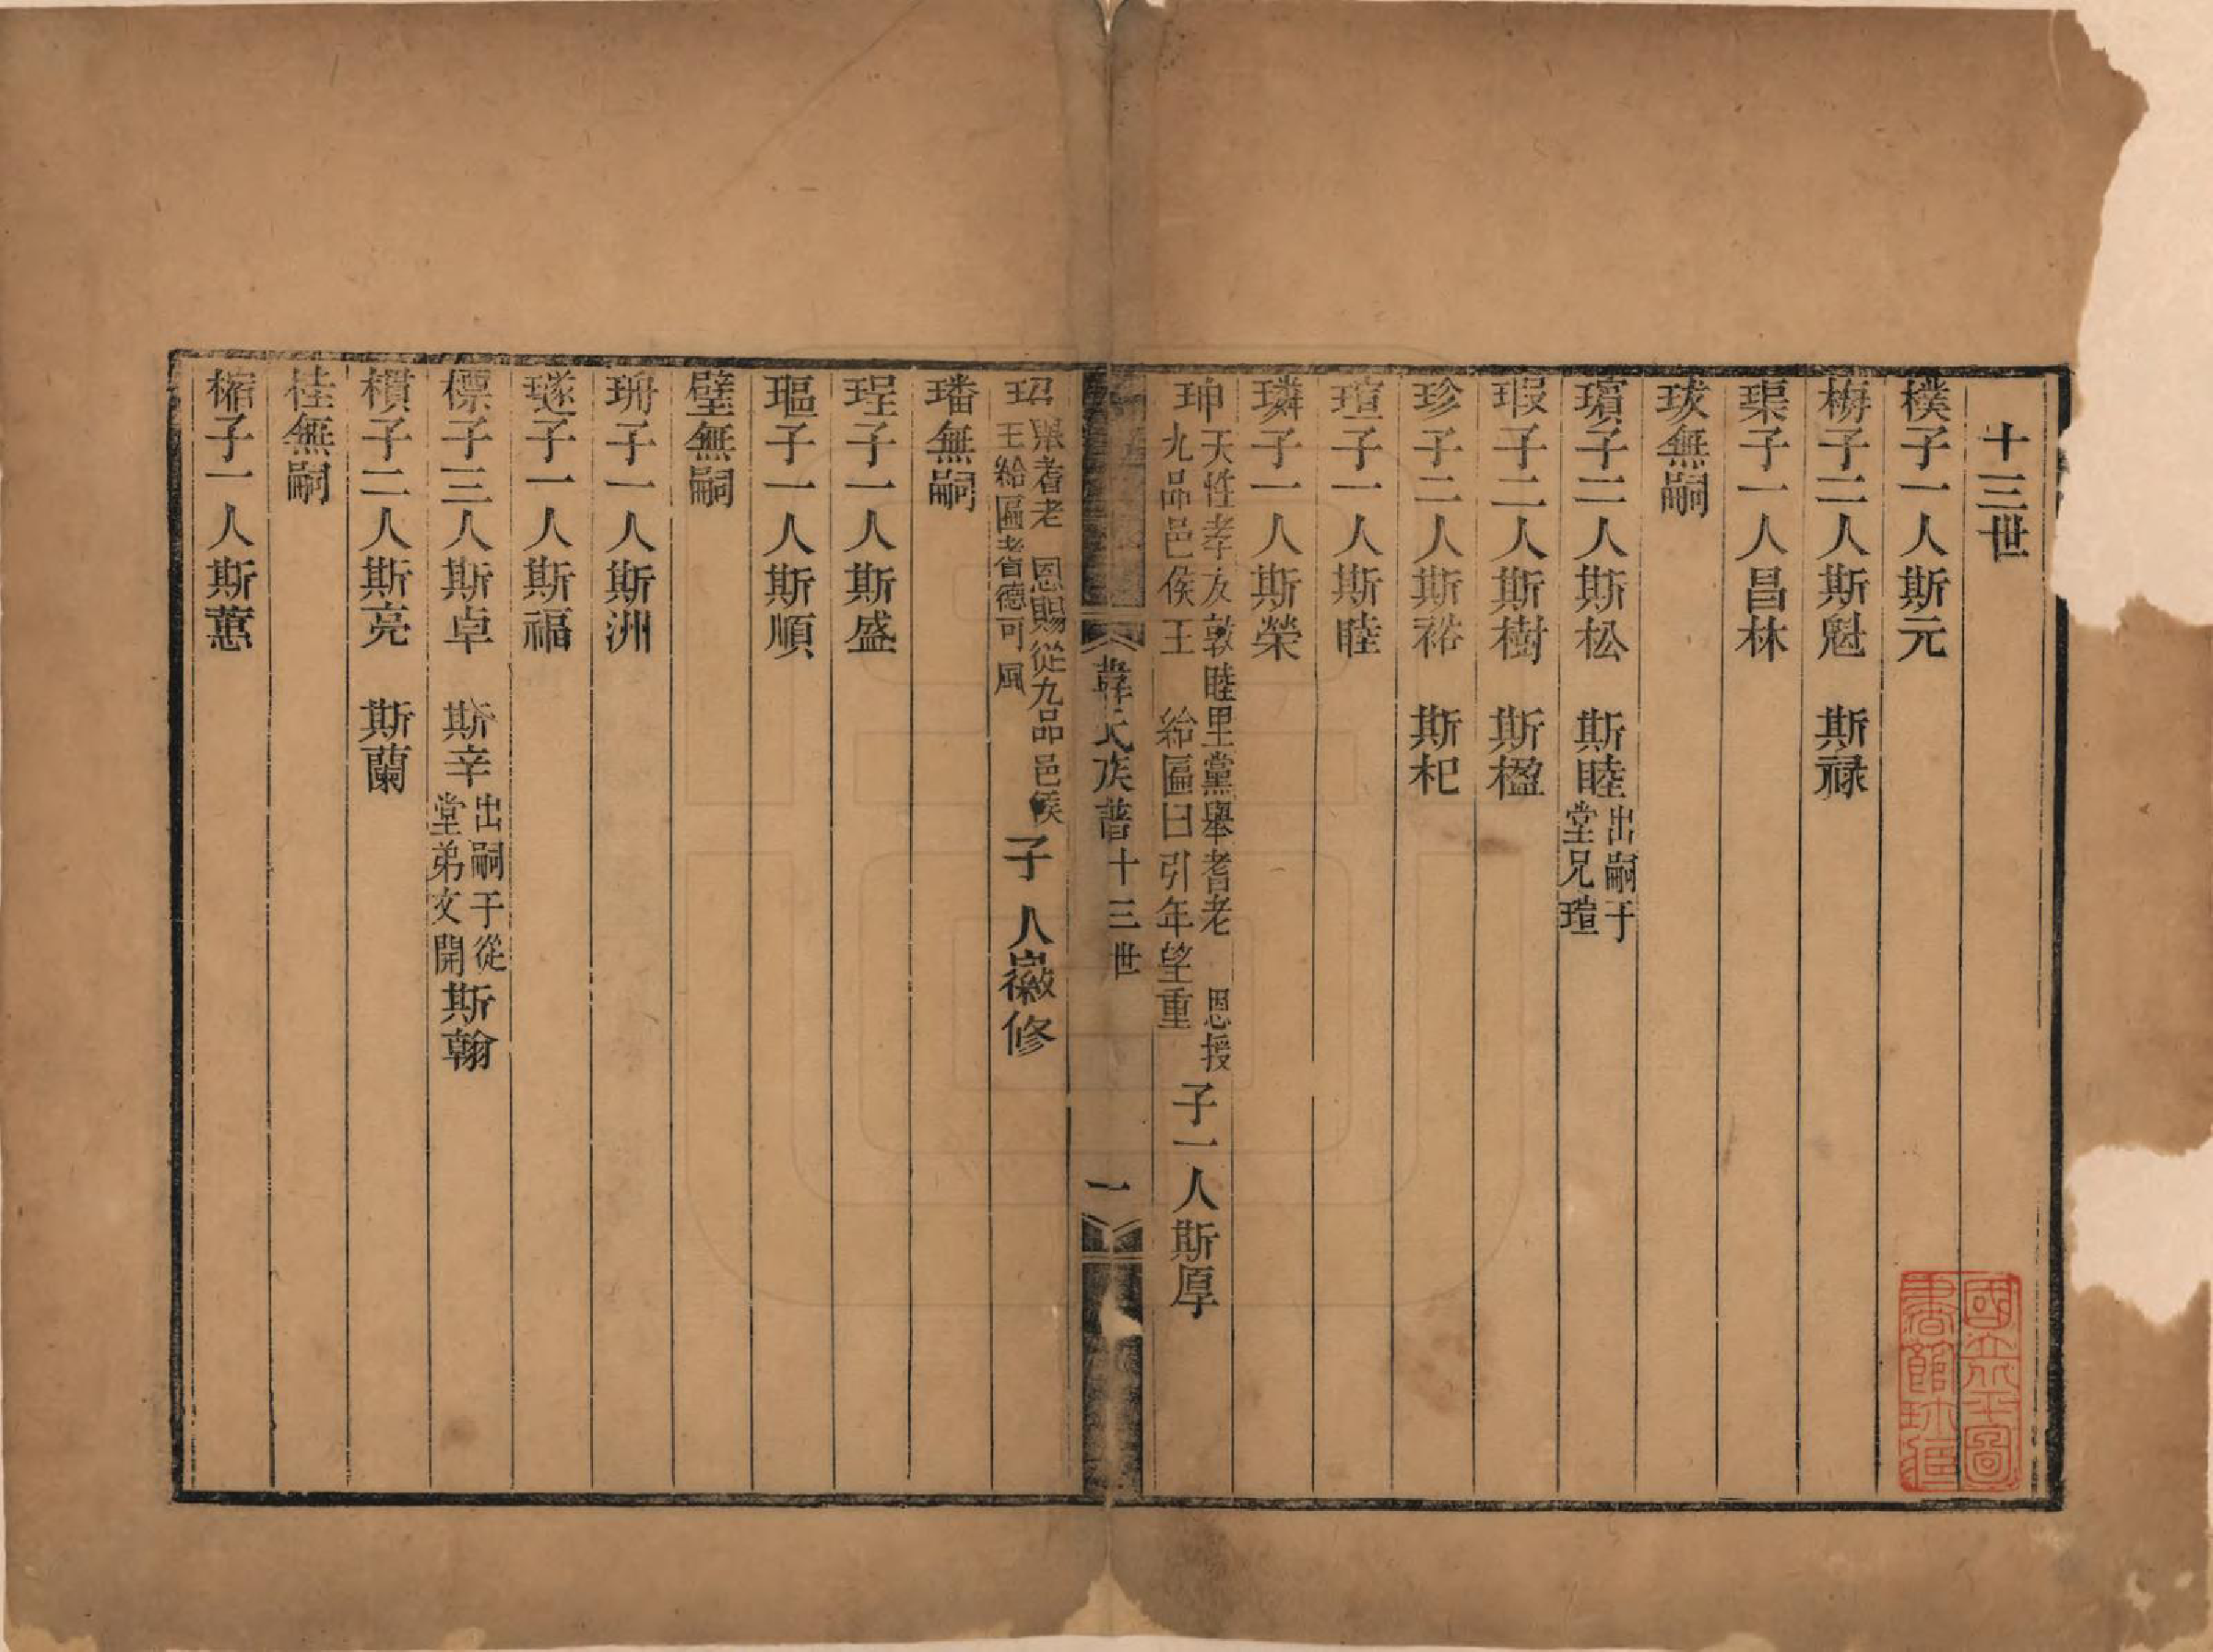 十三世
樸子一人斯元
梅子二人斯魁　斯禄
榘子一人昌林
㺵無嗣
璸子二人斯松　斯睦出嗣于堂兄瑄
瑕子二人斯樹　斯楹
珍子二人斯裕　斯杞
瑄子一人斯睦
璘子一人斯榮
珅天性孝友敦睦里黨舉耆老　恩授九品邑侯王　給匾曰引年望重子一人斯厚
韓氏族譜十三世　一
玿舉耆老　恩賜從九品邑侯王給匾耆德可風子　人徽修
璠無嗣
珵子一人斯盛
瑥子一人斯順
璧無嗣
珘子一人斯洲
璲子一人斯福
標子三人斯卓　斯辛出嗣于從堂弟文開斯翰
樻子二人斯亮　斯蘭
桂無嗣
樎子一人斯蕙
國立北平圖書館珍藏